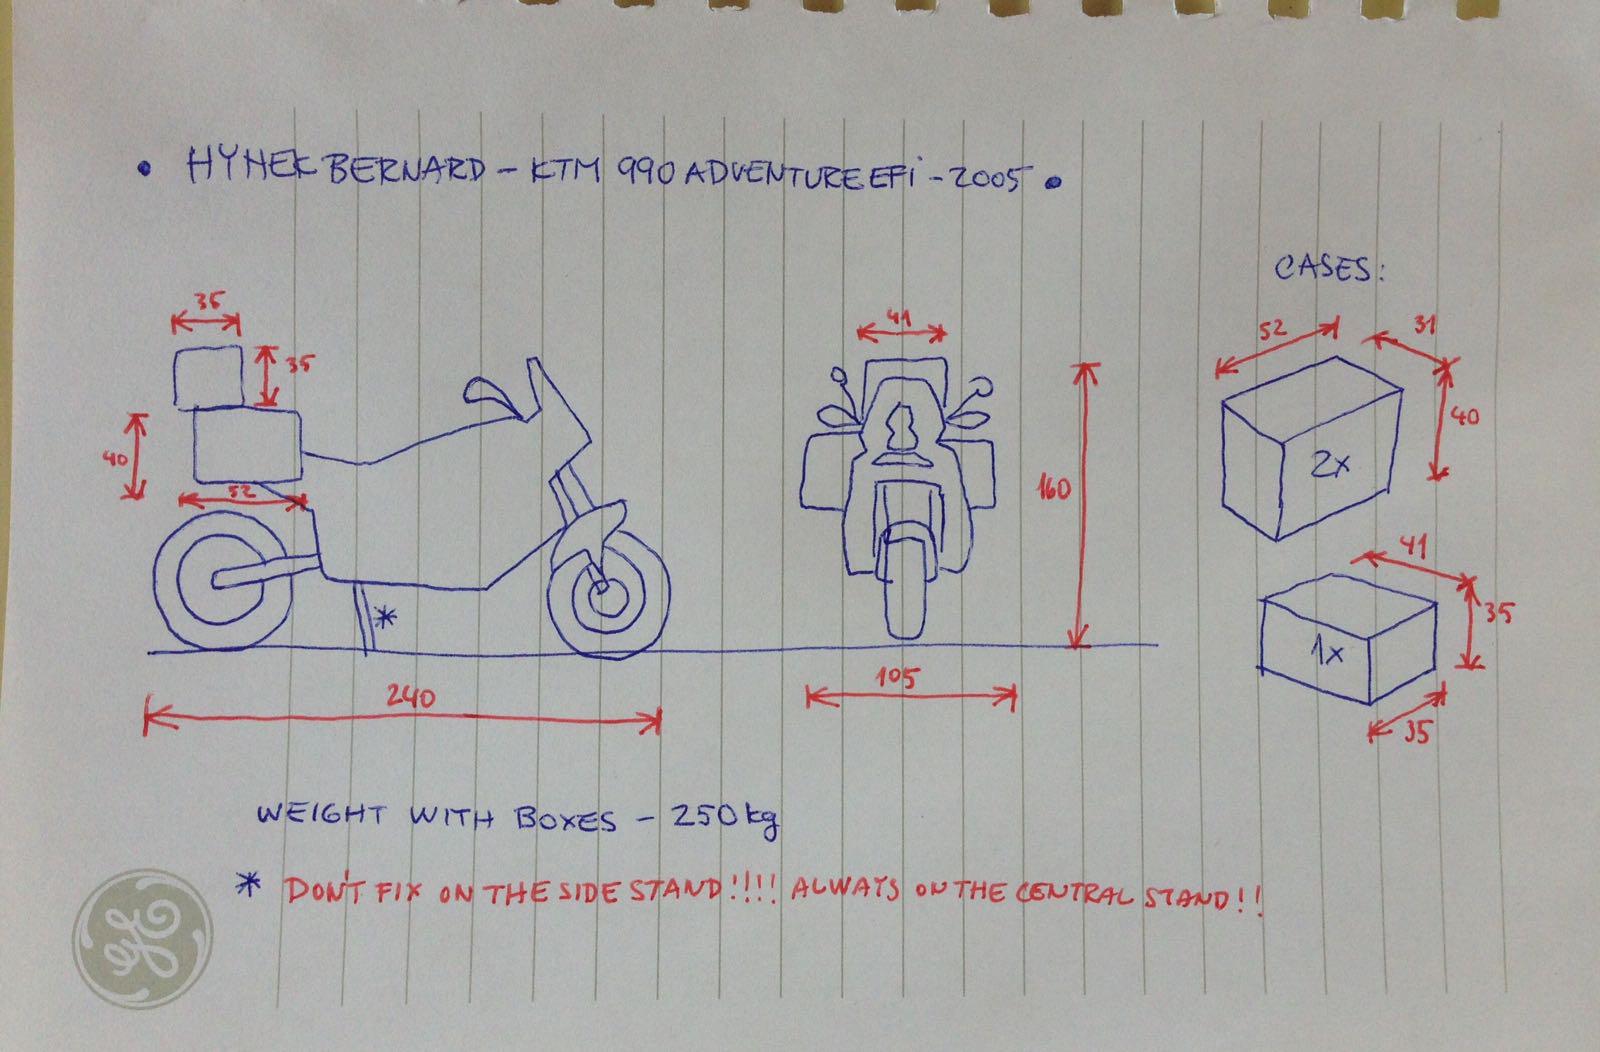 • HYNEK BERNARD - KTM 990 ADVENTURE EFi - 2005 •
CASES:
35
35
40
52
240
41
160
105
52
31
40
2x
41
35
1x
35
*
WEIGHT WITH BOXES - 250kg
* DON'T FIX ON THE SIDE STAND!!!! ALWAYS ON THE CENTRAL STAND!!
GE